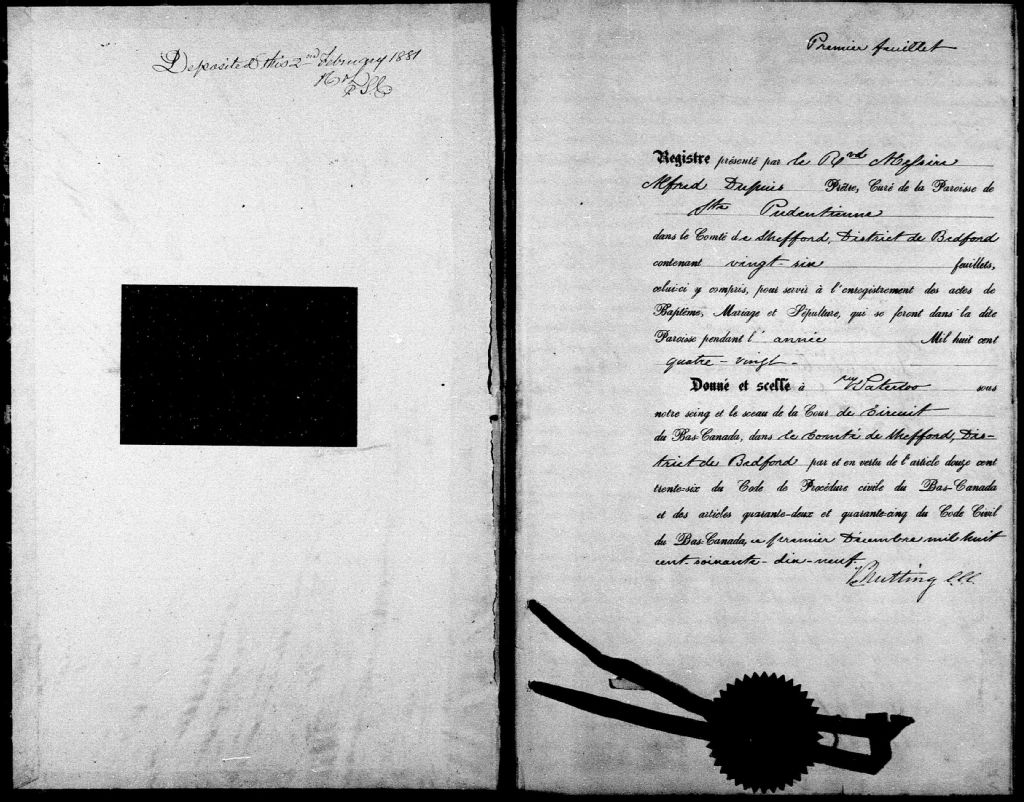 Deposited this 2nd February 1881
P.S.C
Premier feuillet
Registre présenté par le Rvd Messire
Alfred Dupuis Prêtre, Curé de la Paroisse de
Ste Pudentienne
dans le Comté de Shefford, District de Bedford
contenant vingt-six feuillets,
celui-ci y compris, pour servir à l'enregistrement des actes de
Baptême, Mariage et Sépulture, qui se feront dans la dite
Paroisse pendant l'année Mil huit cent
quatre-vingt-
Donné et scellé à Waterloo sous
notre seing et le sceau de la Cour de Circuit
du Bas-Canada, dans le Comté de Shefford, Dis-
trict de Bedford par et en vertu de l'article douze cent
trente-six du Code de Procédure civile du Bas-Canada
et des articles quarante-deux et quarante-cinq du Code Civil
du Bas-Canada, ce premier Décembre mil huit
cent-soixante-dix-neuf.